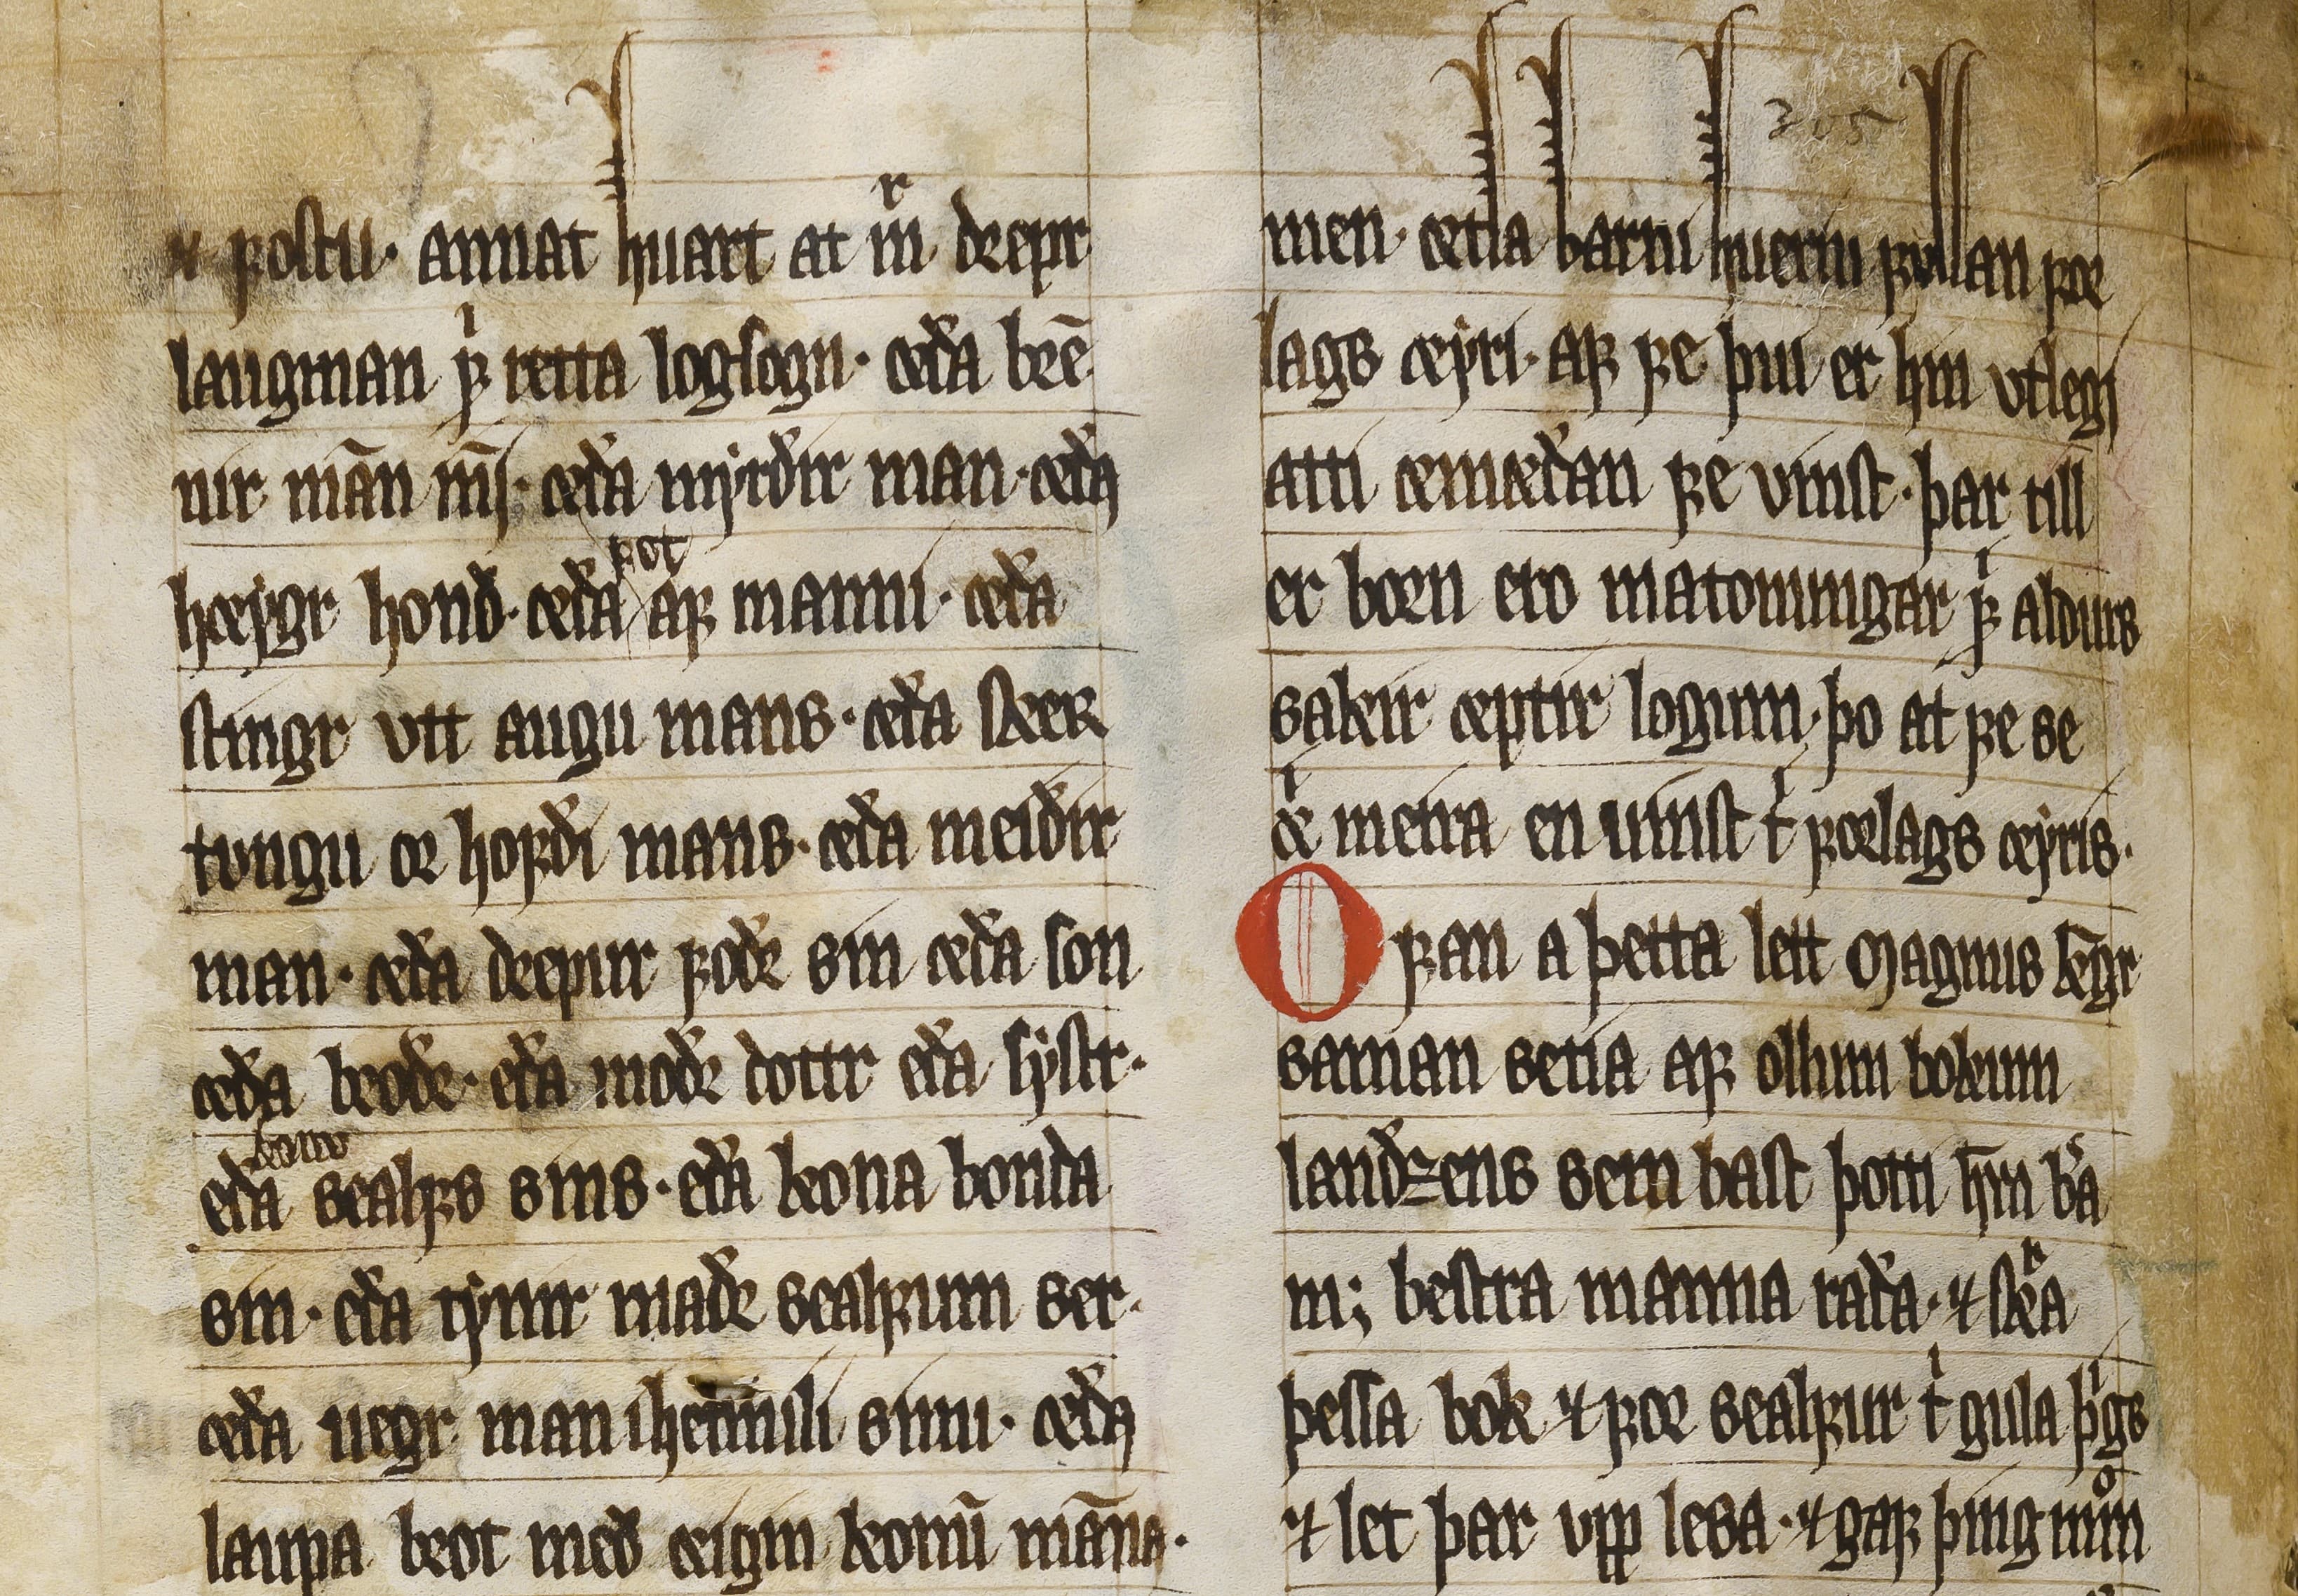 ⁊ fostu. annat huart at mͬ drepr
laugman fͥ retta logsogn. æða brē
nir mān īnj. æða myrðir man. æða
høyggr hond. æða fot af manni. æða
stingr vtt augu mans. æða skeR
tungu or hofði mans. æða meiðir
man. æða drepur foðr sin æða son
æða broðr. eða moðr dottr eða systr.
eða kono sealfs sins. eða kona bonda
sin. eða tynir maðr sealfum ser.
æða uegr man i heimili sinu. æða
laupa brot með æigin konū māna.
305
men. ætla barni hueriu fullan for
lags øyri. af fe þui er hin vtlegi
atti æmæðan fe vinst. þar till
er born ero matomingar fͥ aldurs
saker æptir logum. þo at fe se
æͥ meira en uinst tͥ forlags øyris.
Ofan a þetta lett magnus kōgr
saman setia af ollum bokum
landzens sem bast þotti hm̄ bᷤa
m; bestra manna raða. ⁊ skͬa
þessa bok ⁊ for sealfur tͥ gula þͥgs
⁊ let þar vpp lesa. ⁊ gaf þingmͦm